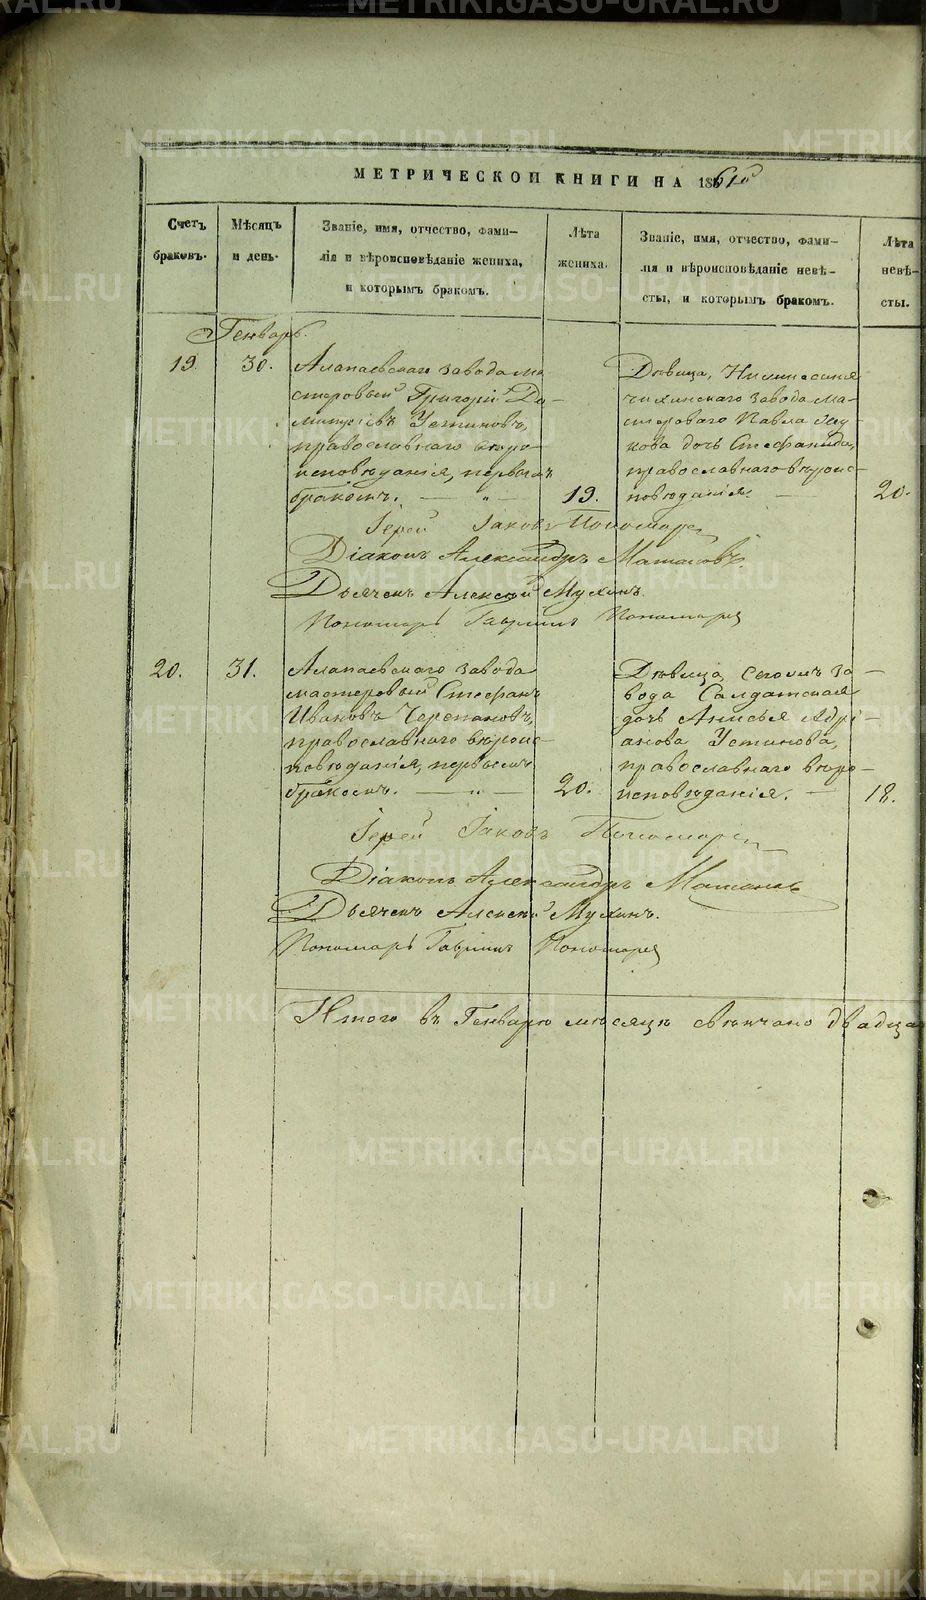 МЕТРИЧЕСКОЙ КНИГИ НА 1861й
Счетъ браковъ.
Мѣсяцъ и день.
Званіе, имя, отчество, фами-
лія и вѣроисповѣданіе жениха,
и которымъ бракомъ.
Лѣта жениха.
Званіе, имя, отчество, фами-
лія и вѣроисповѣданіе невѣ-
сты, и которымъ бракомъ.
Лѣта невѣ-
сты.
Генварь.
19.
30.
Алапаевскаго завода ма-
стеровый Григорій Ди-
митріевъ Устиновъ,
православнаго вѣро-
исповѣданія, первымъ
бракомъ. — „ —
19.
Дѣвица,
чихинскаго завода ма-
стероваго Павла
кова дочь Стефанида,
православнаго вѣроис-
повѣданія. —
20.
Іерей Іаковъ Пономарев
Діаконъ Александръ
Дьячекъ Алексей Мухинъ.
Пономарь Гавриилъ Пономарев
20.
31.
Алапаевскаго завода
мастеровый Стефанъ
Ивановъ Черепановъ,
православнаго вѣроис-
повѣданія, первымъ
бракомъ. — „ —
20.
Дѣвица, сегожъ за-
вода Салдатская
дочь Анисья Адрі-
анова Устинова,
православнаго вѣро-
исповѣданія. —
18.
Іерей Іаковъ Пономарев
Діаконъ Александръ
Дьячекъ Алексей Мухинъ.
Пономарь Гавриилъ Пономарев
Итого въ Генварѣ мѣсяцѣ свѣнчано двадца
METRIKI.GASO-URAL.RU